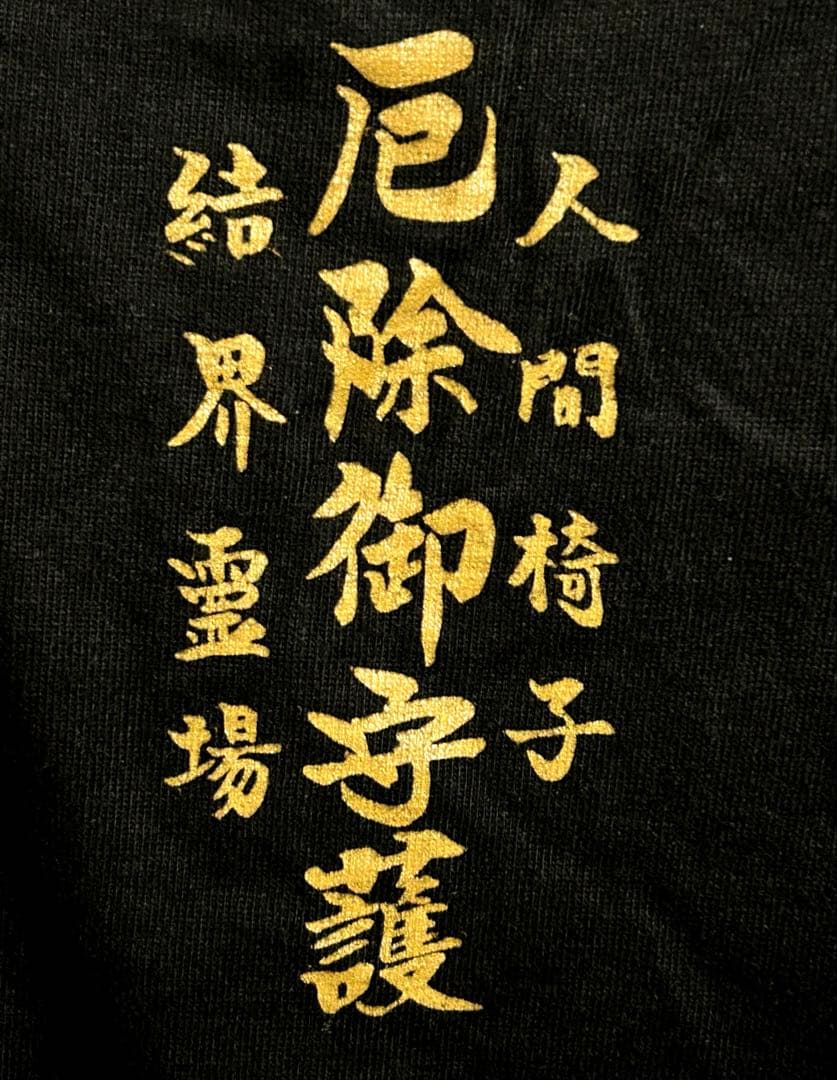 人間椅子
厄除御守護
結界霊場